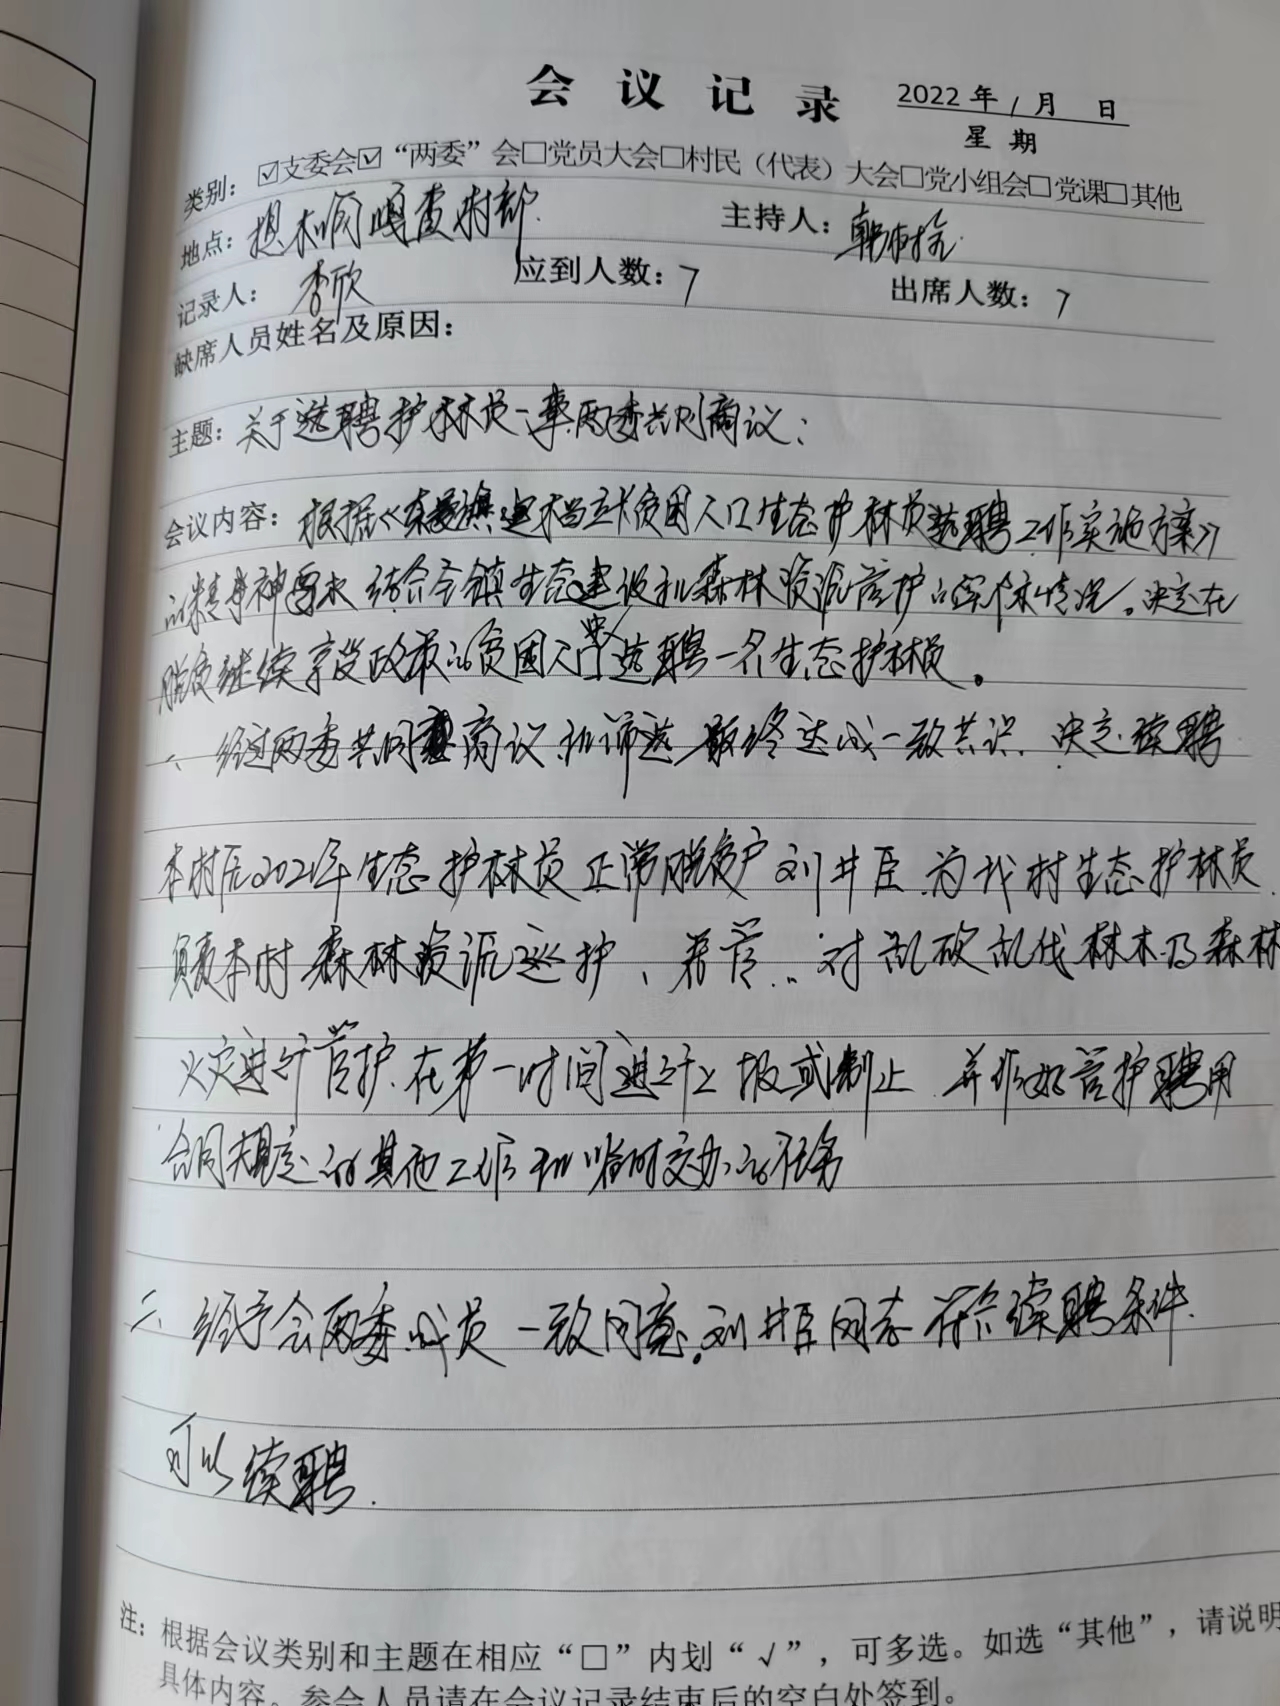 会议记录 2022年1月 日
星期
类别：☑支委会☑“两委”会□党员大会□村民（代表）大会□党小组会□党课□其他
地点：想木阿嘎查村部 主持人：韩
记录人：李欣 应到人数：7 出席人数：7
缺席人员姓名及原因：
主题：关于选聘护林员一事两委共同商议：
会议内容：根据《建档立卡贫困人口生态护林员选聘工作实施方案》
的精神要求 结合全镇生态建设和森林资源管护的具体情况。决定在
脱贫继续享受政策的贫困人口中选聘一名生态护林员。
一、经过两委共同商议和筛选 最终达成一致共识、决定续聘
本村后2021年生态护林员正常脱贫户刘井臣为我村生态护林员
负责本村森林资源巡护、看管、对乱砍乱伐林木及森林
火灾进行管护.在第一时间进行上报或制止 并作好管护聘用
合同规定的其他工作和临时交办的任务
二、经与会两委成员一致同意。刘井臣同志符合续聘条件.
可以续聘.
注：根据会议类别和主题在相应“□”内划“√”，可多选。如选“其他”，请说明
具体内容。参会人员请在会议记录结束后的空白处签到。